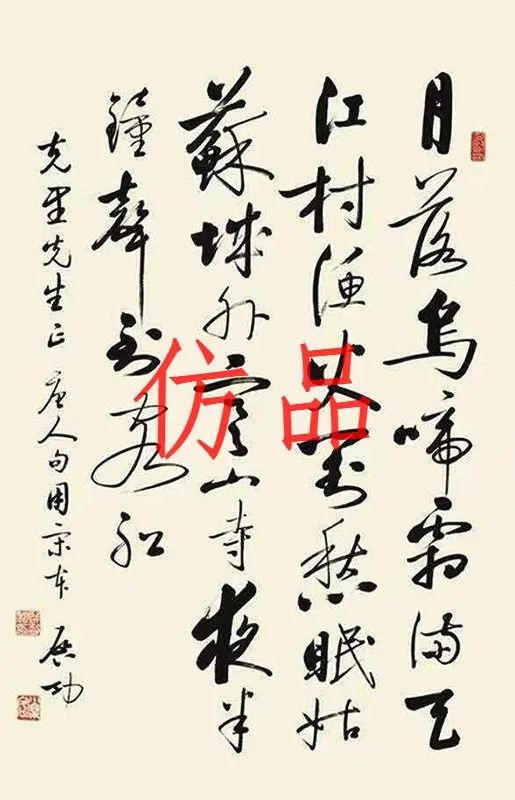 月落乌啼霜满天
江村渔火对愁眠姑
苏城外寒山寺夜半
钟声到客船
克里先生正 唐人句用宋本 启功
仿品